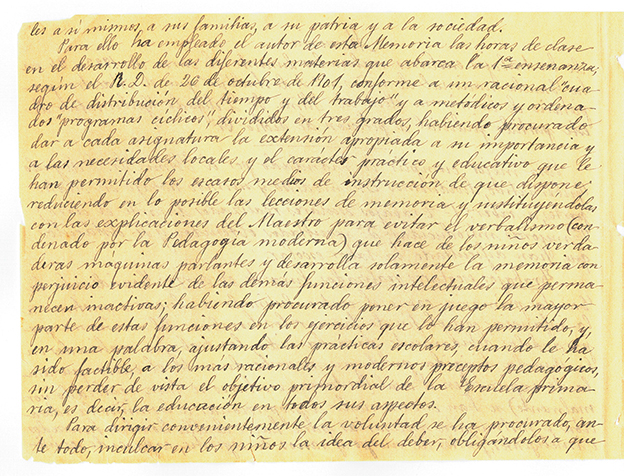 les a sí mismos, a sus familias, a su patria y a la sociedad.
Para ello ha empleado el autor de esta Memoria las horas de clase
en el desarrollo de las diferentes materias que abarca la 1ª enseñanza,
según el R. D. de 26 de octubre de 1901, conforme a un racional "cua-
dro de distribución del tiempo y del trabajo" y a metódicos y ordena-
dos "programas cíclicos", divididos en tres grados, habiendo procurado
dar a cada asignatura la extensión apropiada a su importancia y
a las necesidades locales y el carácter práctico y educativo que le
han permitido los escasos medios de instrucción de que dispone,
reduciendo en lo posible las lecciones de memoria y sustituyéndolas
con las explicaciones del Maestro para evitar el verbalismo (con-
denado por la Pedagogía moderna) que hace de los niños verda-
deras máquinas parlantes y desarrolla solamente la memoria con
perjuicio evidente de las demás funciones intelectuales que perma-
necen inactivas; habiendo procurado poner en juego la mayor
parte de estas funciones en los ejercicios que lo han permitido, y,
en una palabra, ajustando las prácticas escolares, cuando le ha
sido factible, a los más racionales y modernos preceptos pedagógicos,
sin perder de vista el objetivo primordial de la Escuela prima-
ria, es decir, la educación en todos sus aspectos.
Para dirigir convenientemente la voluntad se ha procurado, an-
te todo, inculcar en los niños la idea del deber, obligándolos a que